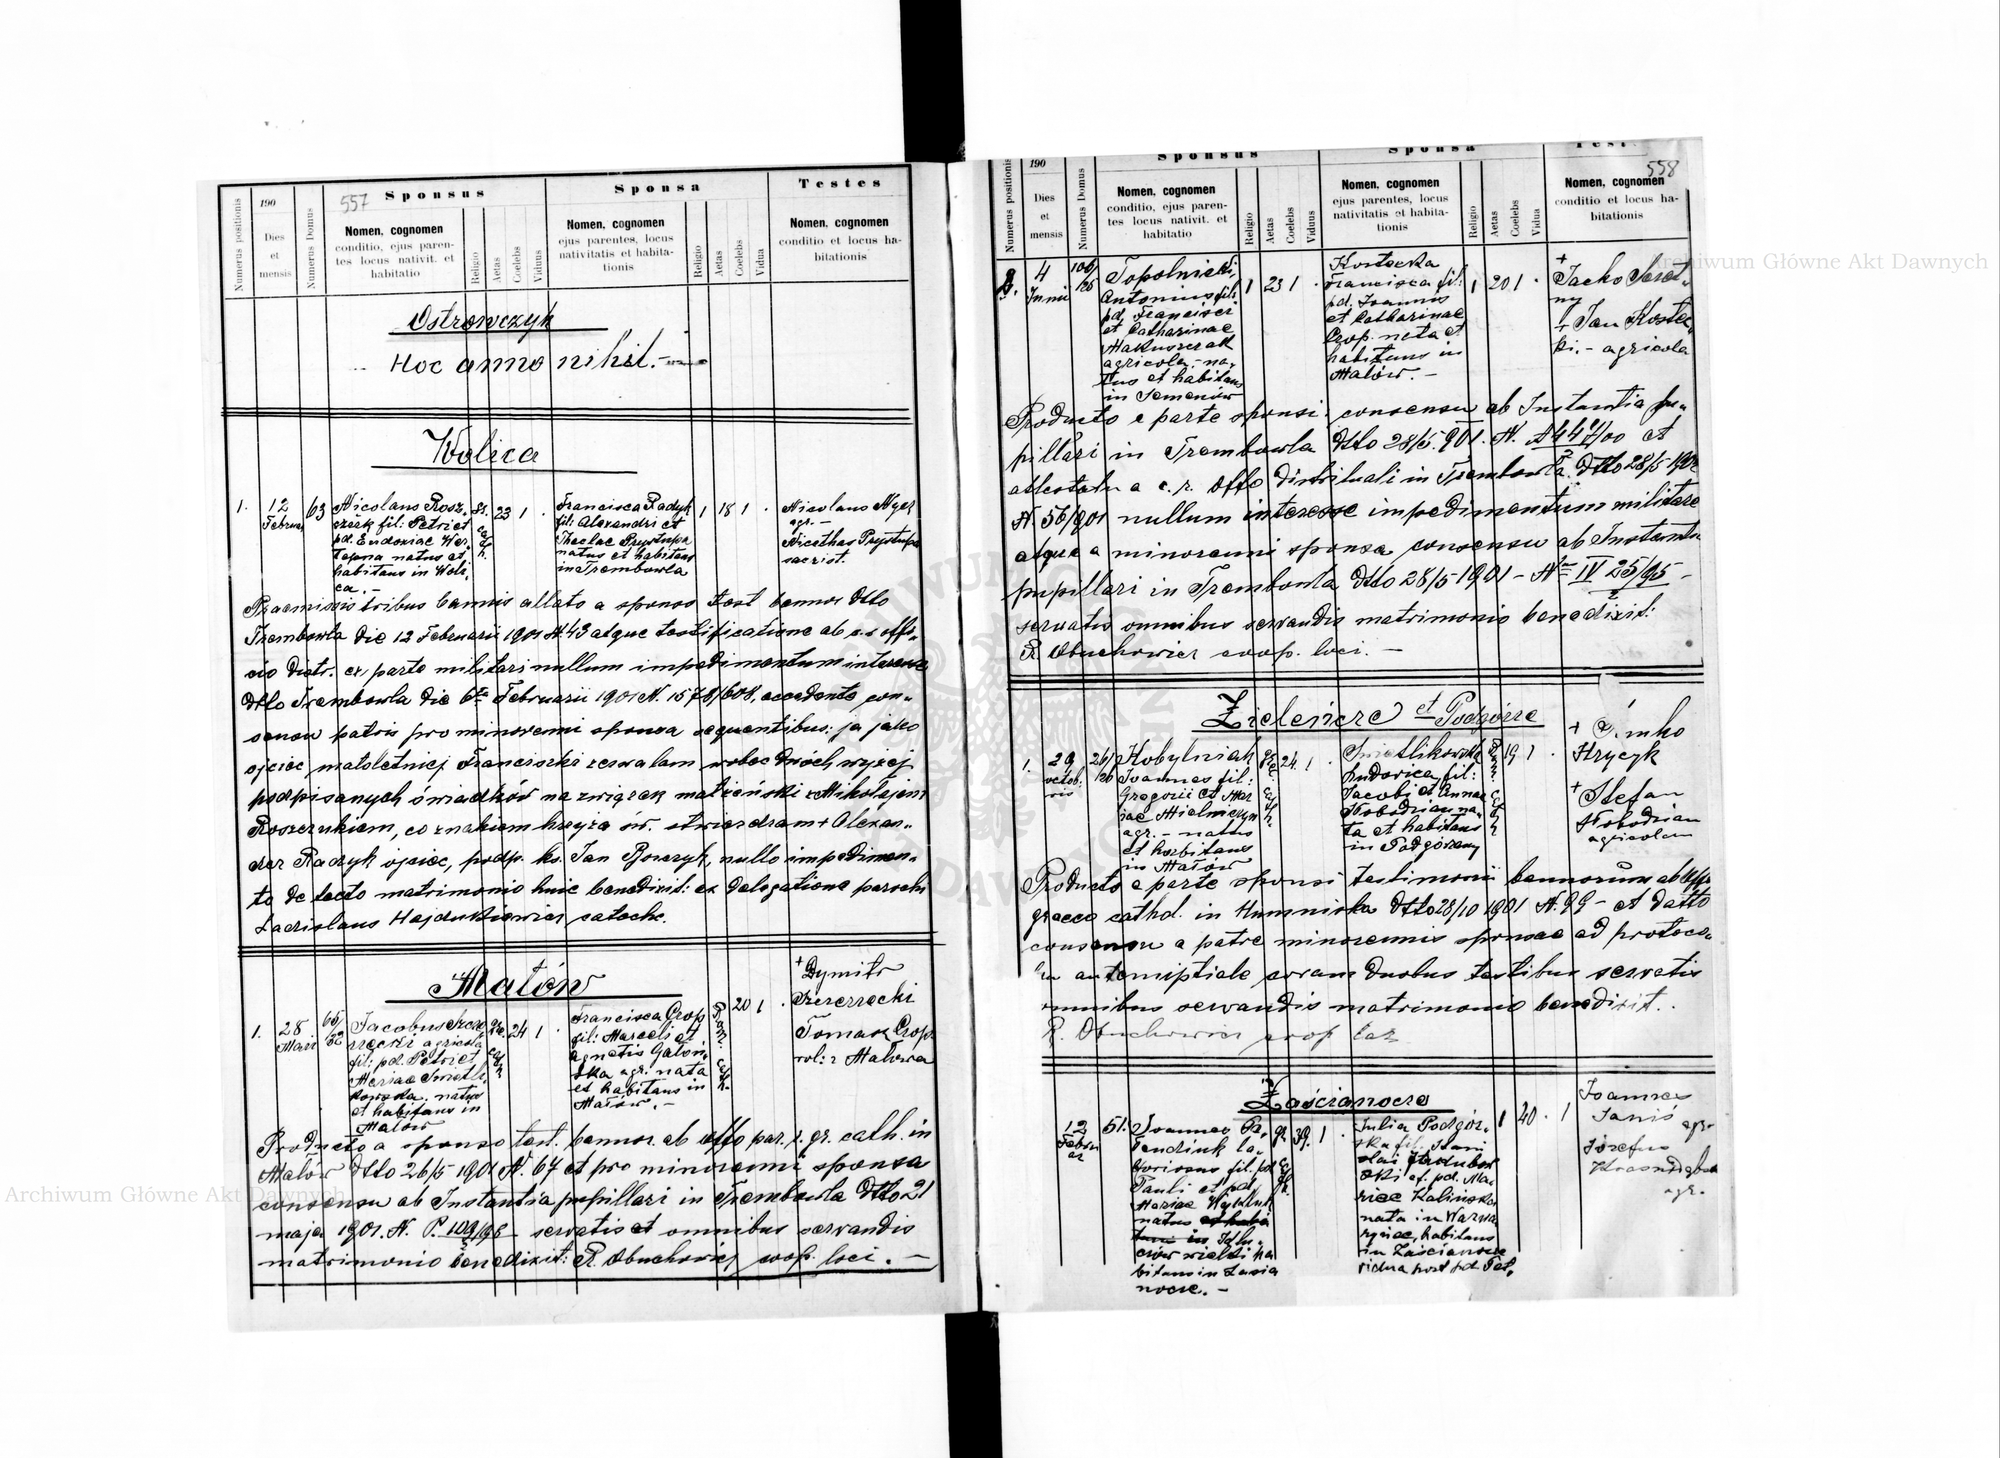 557
190
Sponsus
Sponsa
Testes
Numerus positionis
Dies
et
mensis
Numerus Domus
Nomen, cognomen
conditio, ejus paren-
tes locus nativit. et
habitatio
Religio
Aetas
Coelebs
Viduus
Nomen, cognomen
ejus parentes, locus
nativitatis et habita-
tionis
Religio
Aetas
Coelebs
Vidua
Nomen, cognomen
conditio et locus ha-
bitationis
Ostrowczyk
Hoc anno nihil.
Wolica
1.
12
Februar
63
Nicolaus Rosz-
czuk fil: Petri et
pd. Eudoxiae Wer-
natus et
habitans in Woli-
ca. -
Gr.
cath.
23
1
Francisca Radyk
fil: Alexandri et
Theclae Prystupa
natus et habitans
in Trembowla
1
18
1
Nicolaus
agr. -
Nicethas Prystupa
sacrist.
Praemissis tribus bannis allato a sponso test bannor dtto
Trembowla die 12 Februarii 1901 N. 43 atque testificatione ab c. r. offi-
cio distr. ex parte militari nullum impedimentum interesse
dtto Trembowla die 6ta Februarii 1901 N. 1578/608, accedente con-
sensu patris pro minorenni sponsa sequentibus: ja jako
ojciec małoletniej Franciszki zezwalam wobec dwóch wyżej
podpisanych świadków na związek małżeński z Mikołajem
Roszczukiem, co znakiem krzyża św. stwierdzam + Alexan-
der Radyk ojciec, podp. ks. Jan nullo impedimen-
to detecto matrimonio huic benedixit: ex delegatione parochi
Ladislaus Hajdukiewicz catech.
Małów
1.
28
Maii
65/62
Jacobus
agricola
fil: pd. Petri et
Mariae Swietli-
kowska. natus
et habitans in
Małów
gr.
cath
24
1
Francisca Crop
fil: Marcelli et
Agnetis
agr. nata
et habitans in
Małów. -
Rom.
cath.
20
1
+ Dymitr
Tomasz Crop
rol: z Małowa
Producto a sponso test. bannor. ab offo par. r. gr. cath. in
Małów dtto 26/5 1901 N. 67 et pro minorenni sponsa
consensu ab Instantia pupillari in Trembowla dtto 21
maja 1901. N. P. 109/98 servatis et omnibus servandis
matrimonio benedixit: R. Obuchowicz coop. loci. -
558
190
Sponsus
Sponsa
Test
Numerus positionis
Dies
et
mensis
Numerus Domus
Nomen, cognomen
conditio, ejus paren-
tes locus nativit. et
habitatio
Religio
Aetas
Coelebs
Viduus
Nomen, cognomen
ejus parentes, locus
nativitatis et habita-
tionis
Religio
Aetas
Coelebs
Vidua
Nomen, cognomen
conditio et locus ha-
bitationis
2.
4
Junii
Topolnicki
Antonius fil:
pd. Francisci
et Catharinae
Makuszczak
agricola - na-
tus et habitans
in Semenów
1
23
1
Kostecka
Francisca fil:
pd. Joannis
et Catharinae
Crop. nata et
habitans in
Małów. -
1
20
1
+ Jacko
+ Jan Kostec-
ki. - agricola
Producto e parte sponsi consensu ab Instantia pu-
pillari in Trembowla dtto 28/5 901. N. et
attestatu a c. r. offo districtuali in Trembowla dtto 28/5 901
N. 56/901 nullum interesse impedimentum militare
atque a minorenni sponsa consensu ab Instantia
pupillari in Trembowla dtto 28/5 1901 - No IV 25/95 -
servatis omnibus servandis matrimonio benedixit:
R. Obuchowicz coop. loci. -
Zieleńcze et Podgórze
1.
29
octob-
ris
26/
Kobylniak
Joannes fil:
Gregorii et Mar
iae Mielniczyn
agr. - natus
et habitans
in Małów
gr.
cath.
24.
1
Swietlikowska
Ludovica fil:
Jacobi et Annae
Słobodzian na-
ta et habitans
in Podgórzany
cath
19
1
+ Símko
Hrycyk
+ Stefan
Słobodzian
agricolam
Producto e parte sponsi testimonii bannorum ab offo
graeco cathol. in Humniska dtto 28/10 1901 N. 99 - et datto
consensu a patre minorennis sponsae ad protoco-
lu antenuptiale coram duobus testibus servatis
omnibus servandis matrimonio benedixit.
R. Obuchowicz coop. lac
Zaścianocze
12
Februar
51.
Joannes
la-
fil. pd
Pauli et pd.
Mariae
natus et habi
tans in
wielki ha
bitans in Zaścia
nocze. -
gr.
cath.
39.
1
Julia Podgór-
ska fil. Stani
slai
ski et pd. Ma-
riae Kalińska
nata in Warwa
habitans
in Zaścianocze
vidua post pd.
1
40
1
Joannes
Janiś
agr.
Josefus
agr.
Archiwum Główne Akt Dawnych
Archiwum Główne Akt Dawnych